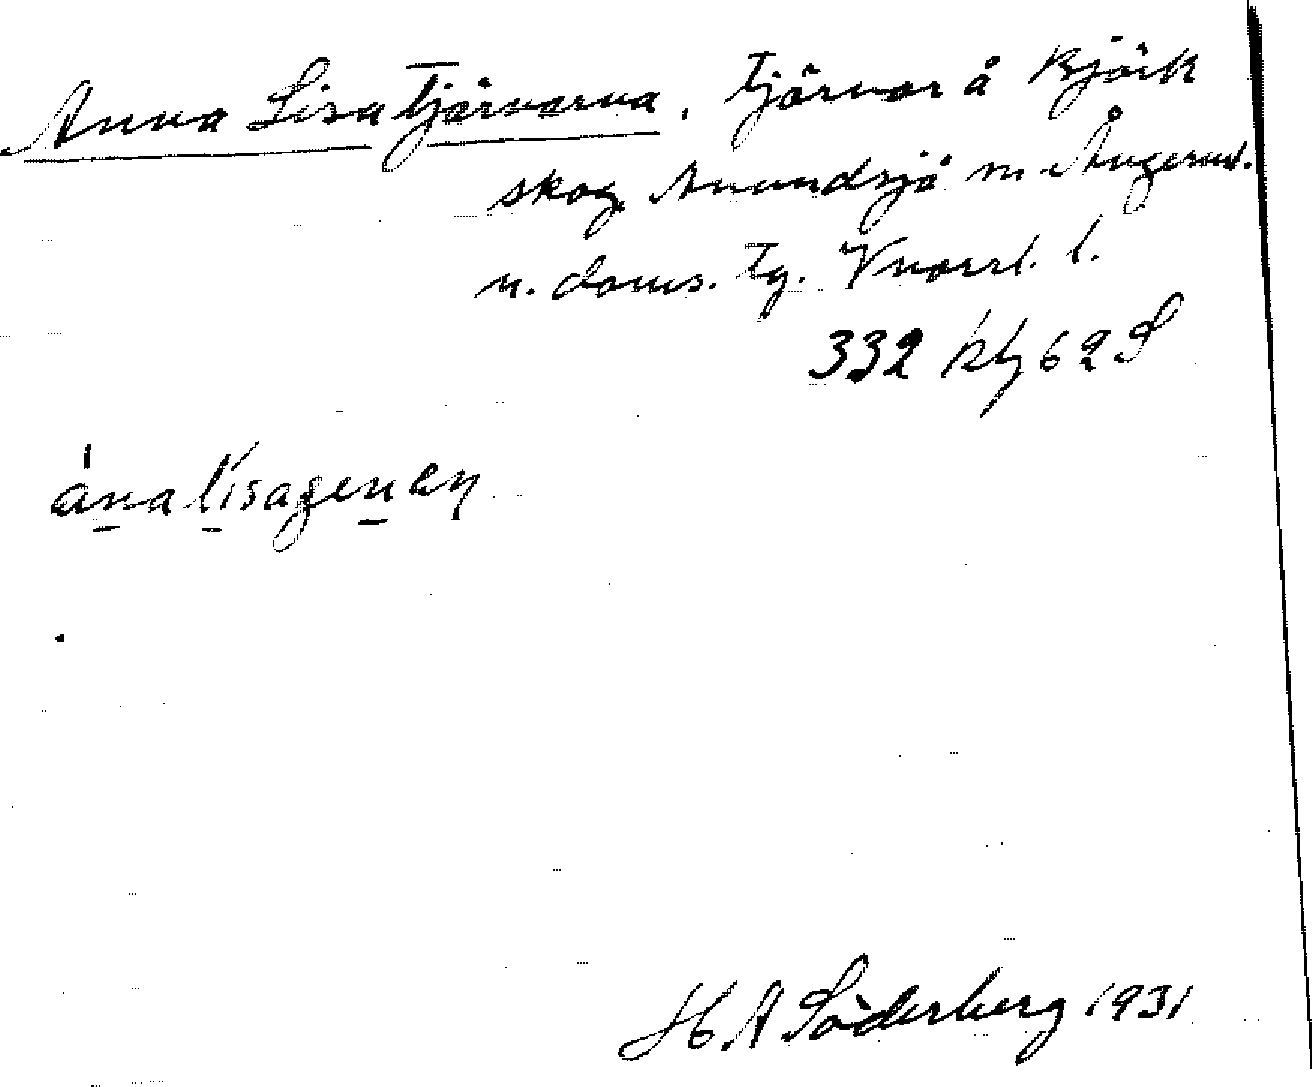 Anna Lisa Tjärnarna, Tjärnar å Björk
skog Anundsjö sn. Ångerml.
n. doms. tg. Vnorrl. l.
332 62 S
ána lisagen
H A Söderberg 1931